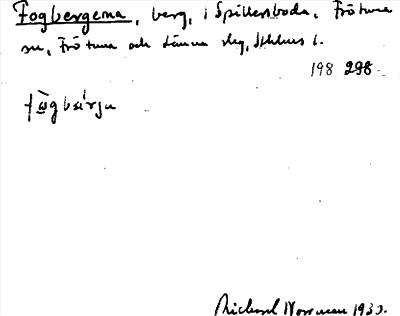 Fogbergena, berg, i Spillersboda, Frötuna
sn, Frötuna och Länna slg, Sthlms l.
198 298.
Richard Norrman 1930.